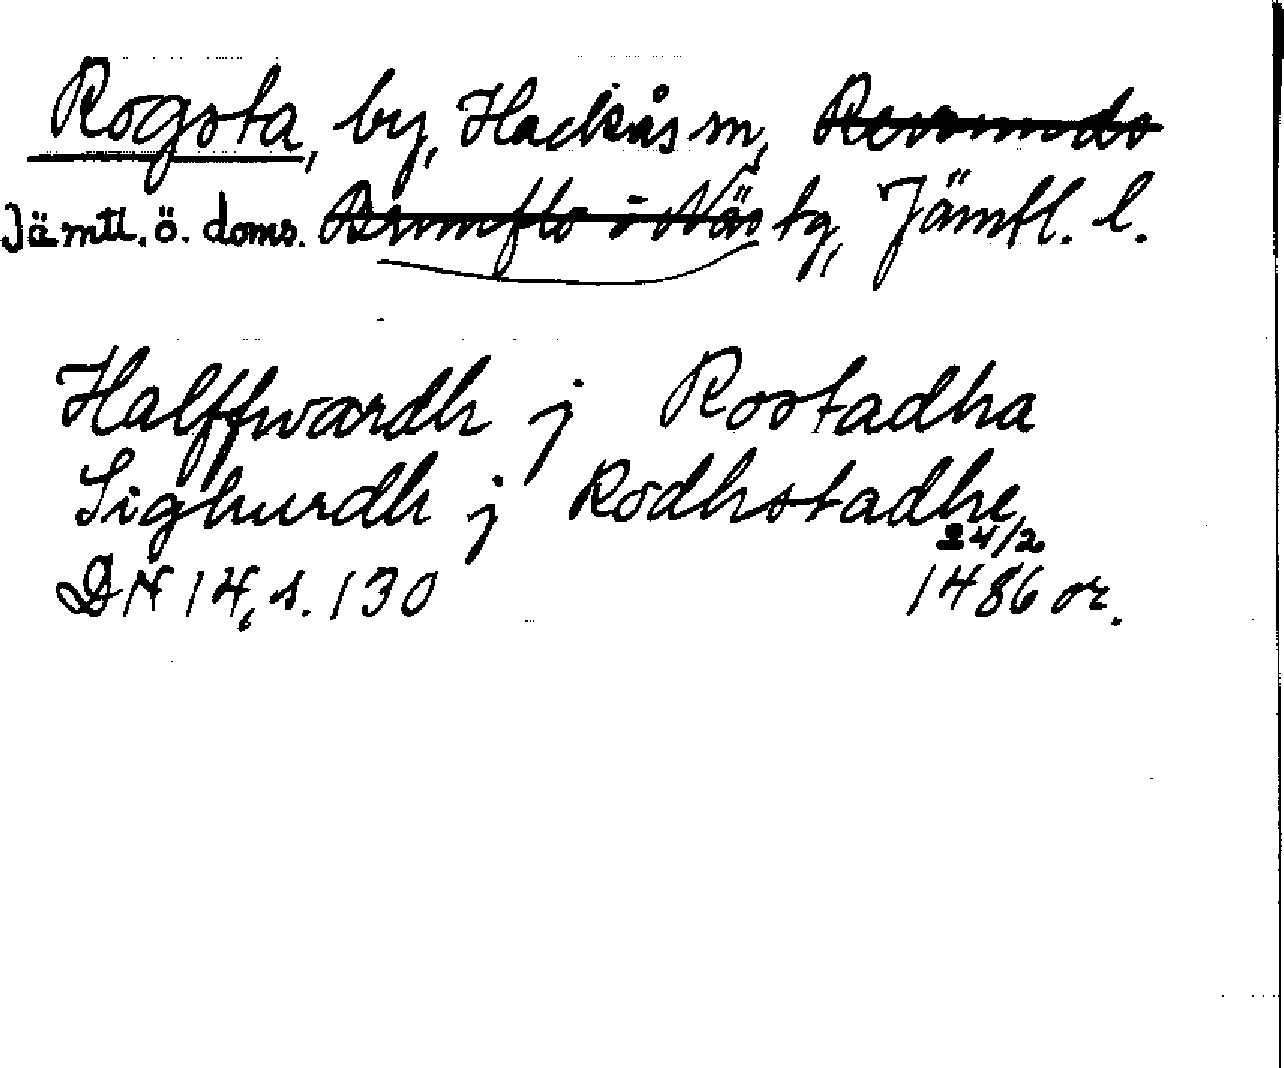 Rogsta, by, Hackås sn, Revsunds
Jämtl. ö. doms. Brunflo o Näs tg, Jämtl. l.
Halffwardh j Rostadha
Sighurdh j Rodhstadhe
24/2
DN 14, s. 130 1486 or.